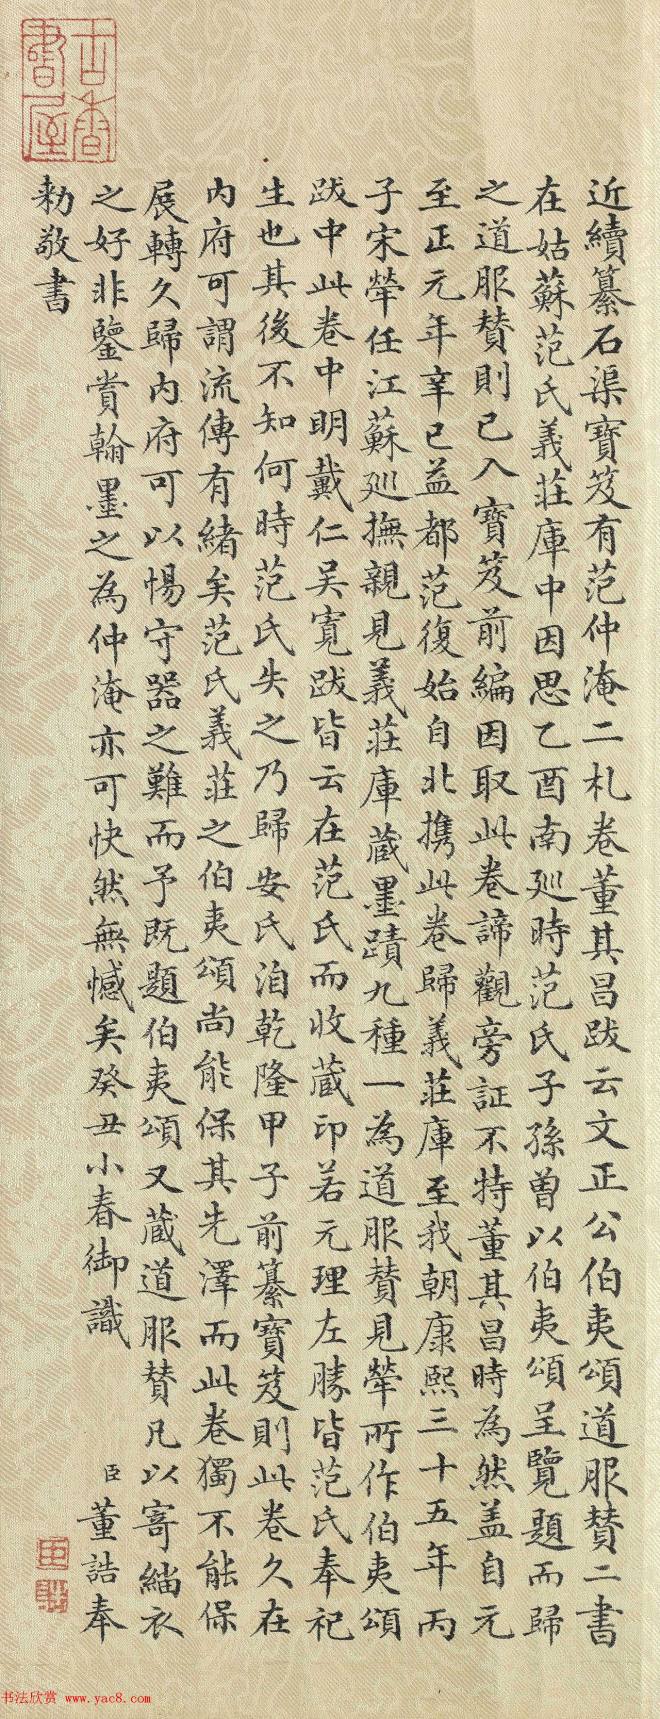 近續纂石渠寶笈有范仲淹二札卷董其昌跋云文正公伯夷頌道服贊二書
在姑蘇范氏義莊庫中因思乙酉南廵時范氏子孫曾以伯夷頌呈覽題而歸
之道服贊則已入寶笈前編因取此卷諦觀旁証不特董其昌時為然盖自元
至正元年辛巳益都范復始自北携此卷歸義莊庫至我朝康熙三十五年丙
子宋犖任江蘇廵撫親見義莊庫蔵墨蹟九種一為道服贊見犖所作伯夷頌
跋中此卷中明戴仁吴寬跋皆云在范氏而收蔵印若元理左勝皆范氏奉祀
生也其後不知何時范氏失之乃歸安氏洎乾隆甲子前纂寶笈則此卷久在
內府可謂流傳有緒矣范氏義莊之伯夷頌尚能保其先澤而此卷獨不能保
展轉久歸內府可以惕守器之難而予既題伯夷頌又蔵道服贊凡以寄緇衣
之好非鑒賞翰墨之為仲淹亦可快然無憾矣癸丑小春御識
臣董誥奉
勑敬書
古香書屋
书法欣赏 www.yac8.com